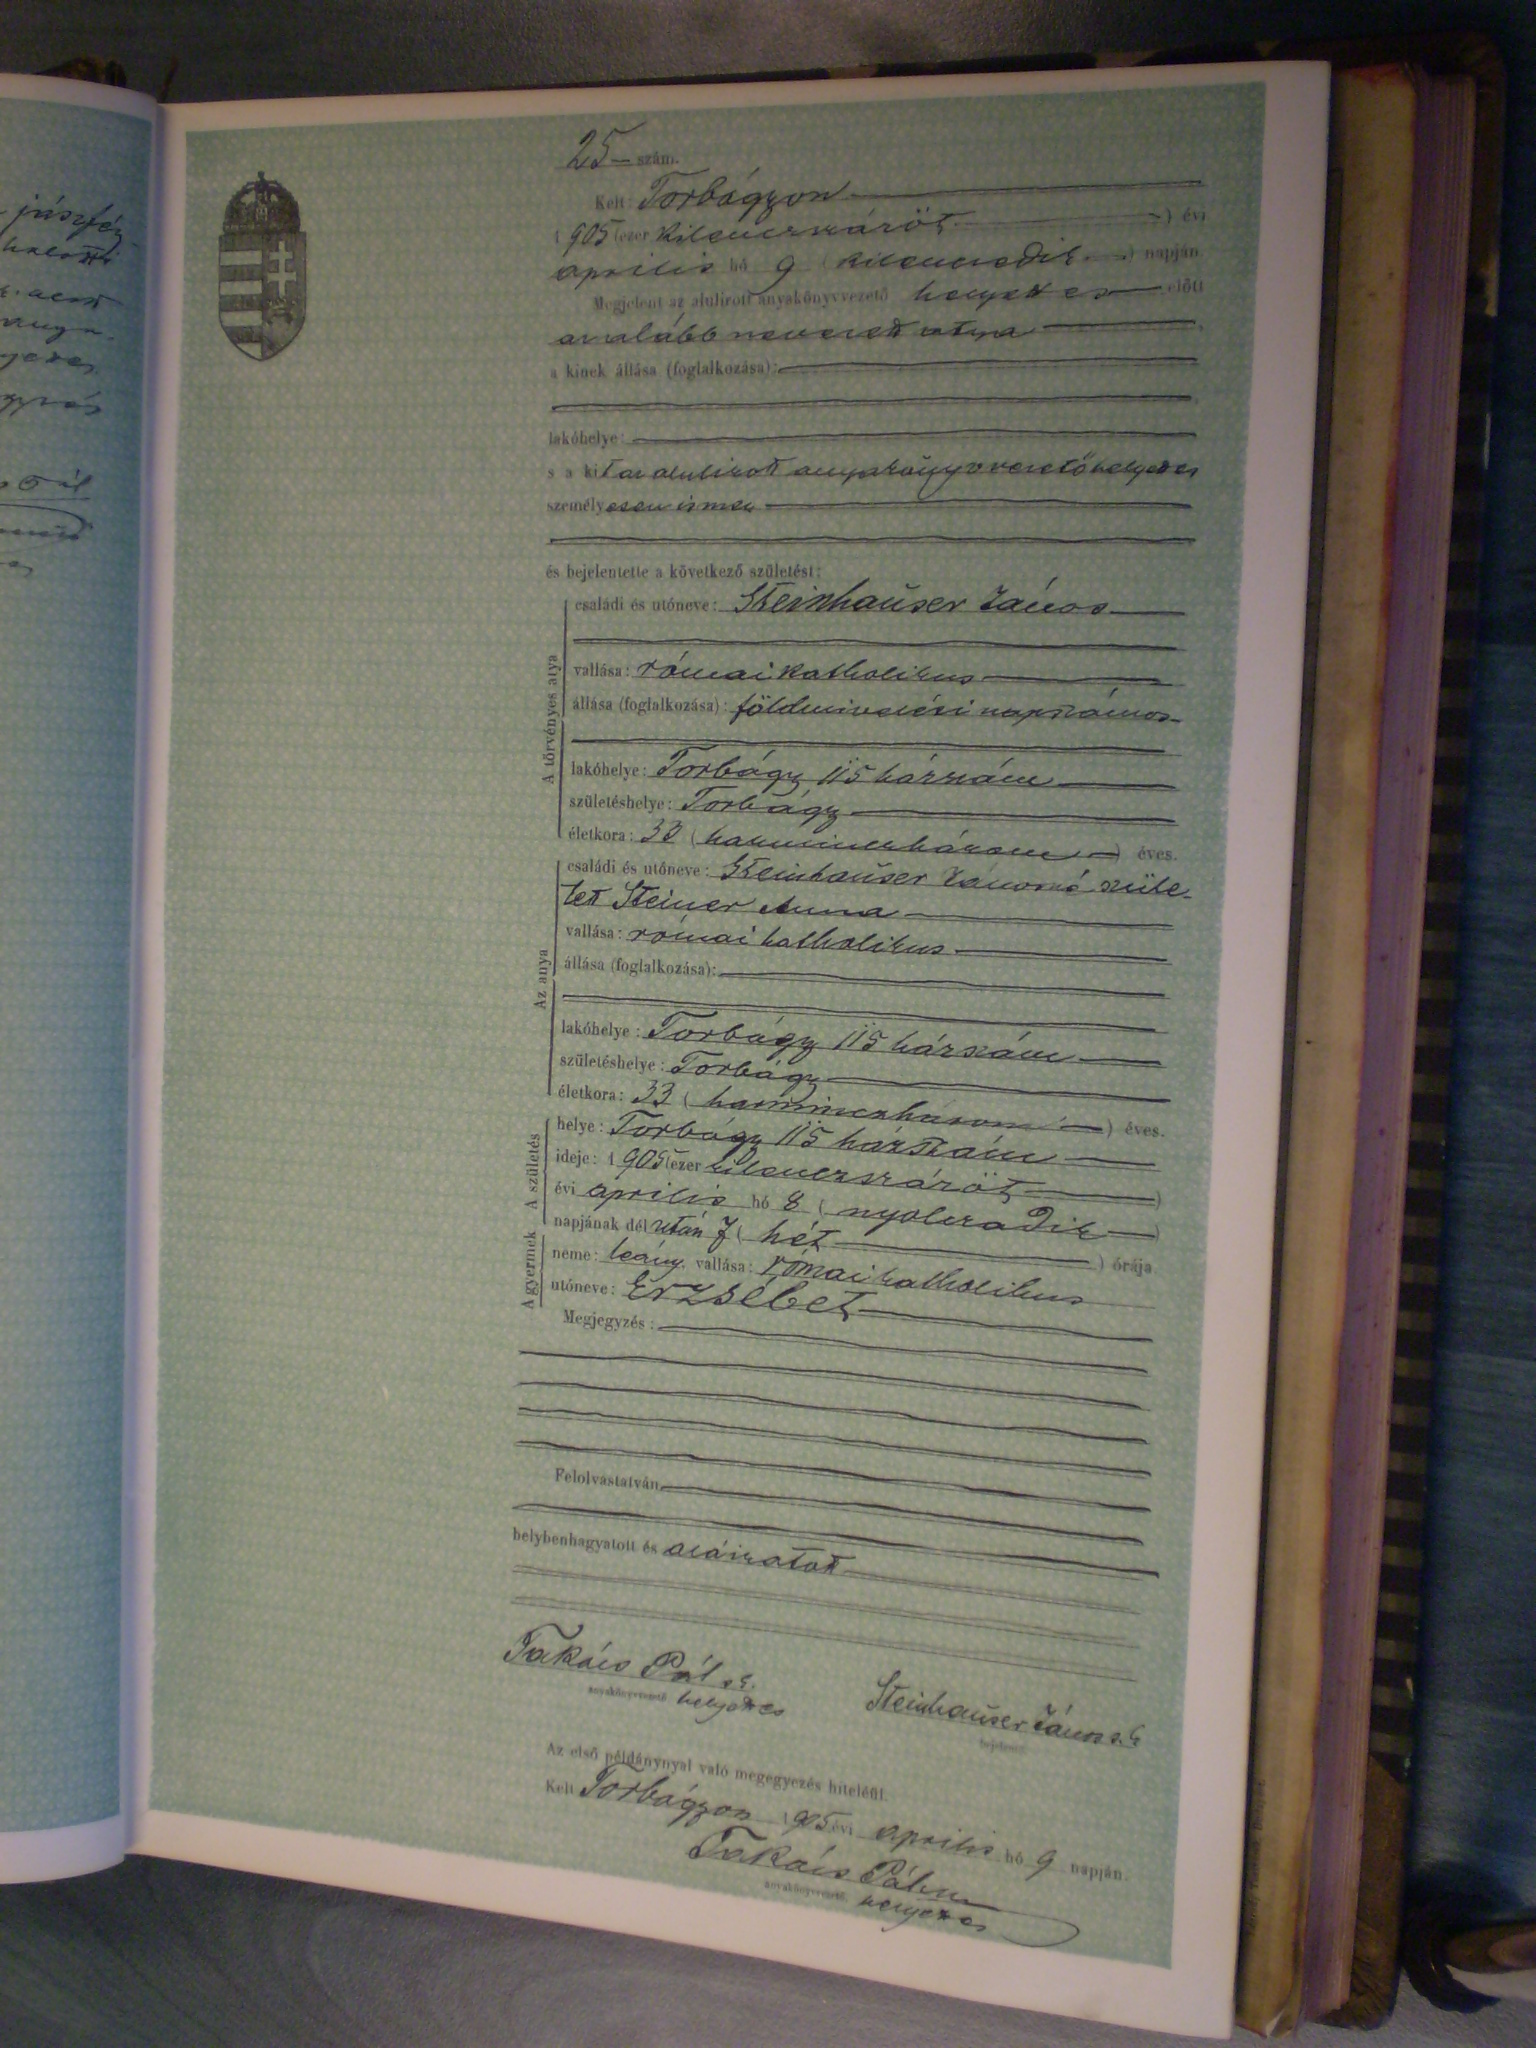 25 — szám.
Kelt: Torbágyon
1905 (ezer kilenczszáröt) évi
április hó 9 (kilenczedik) napján
Megjelent az alulírott anyakönyvvezető helyettes előtt
az alább nevezett atya
a kinek állása (foglalkozása):
lakóhelye:
s a kit az alulirott anyakönyvvezetőhelyettes
személyesen ismer
és bejelentette a következő születést:
A törvényes atya
családi és utóneve: Steinhauser János
vallása: római katholikus
állása (foglalkozása): földmivelési napszámos
lakóhelye: Torbágy 115 házszám
születéshelye: Torbágy
életkora: 33 (harminczhárom) éves.
Az anya
családi és utóneve: Steinhauser Jánosné szüle-
tett Steiner Anna
vallása: római katholikus
állása (foglalkozása):
lakóhelye: Torbágy 115 házszám
születéshelye: Torbágy
életkora: 33 (harminczhárom) éves.
A születés
helye: Torbágy 115 házszám
ideje: 1905 (ezer kilenczszáröt)
évi április hó 8 (nyolczadik)
napjának dél után 7 (hét) órája
A gyermek
neme: leány, vallása: római katholikus
utóneve: Erzsébet
Megjegyzés:
Felolvastatván,
helybenhagyatott és aláiratott
Takács Pál s.k.
anyakönyvvezető helyettes
Steinhauser János s.k.
bejelentő
Az első példánynyal való megegyezés hiteléül.
Kelt Torbágyon 1905 évi április hó 9 napján.
Takács Pál
anyakönyvvezető helyettes